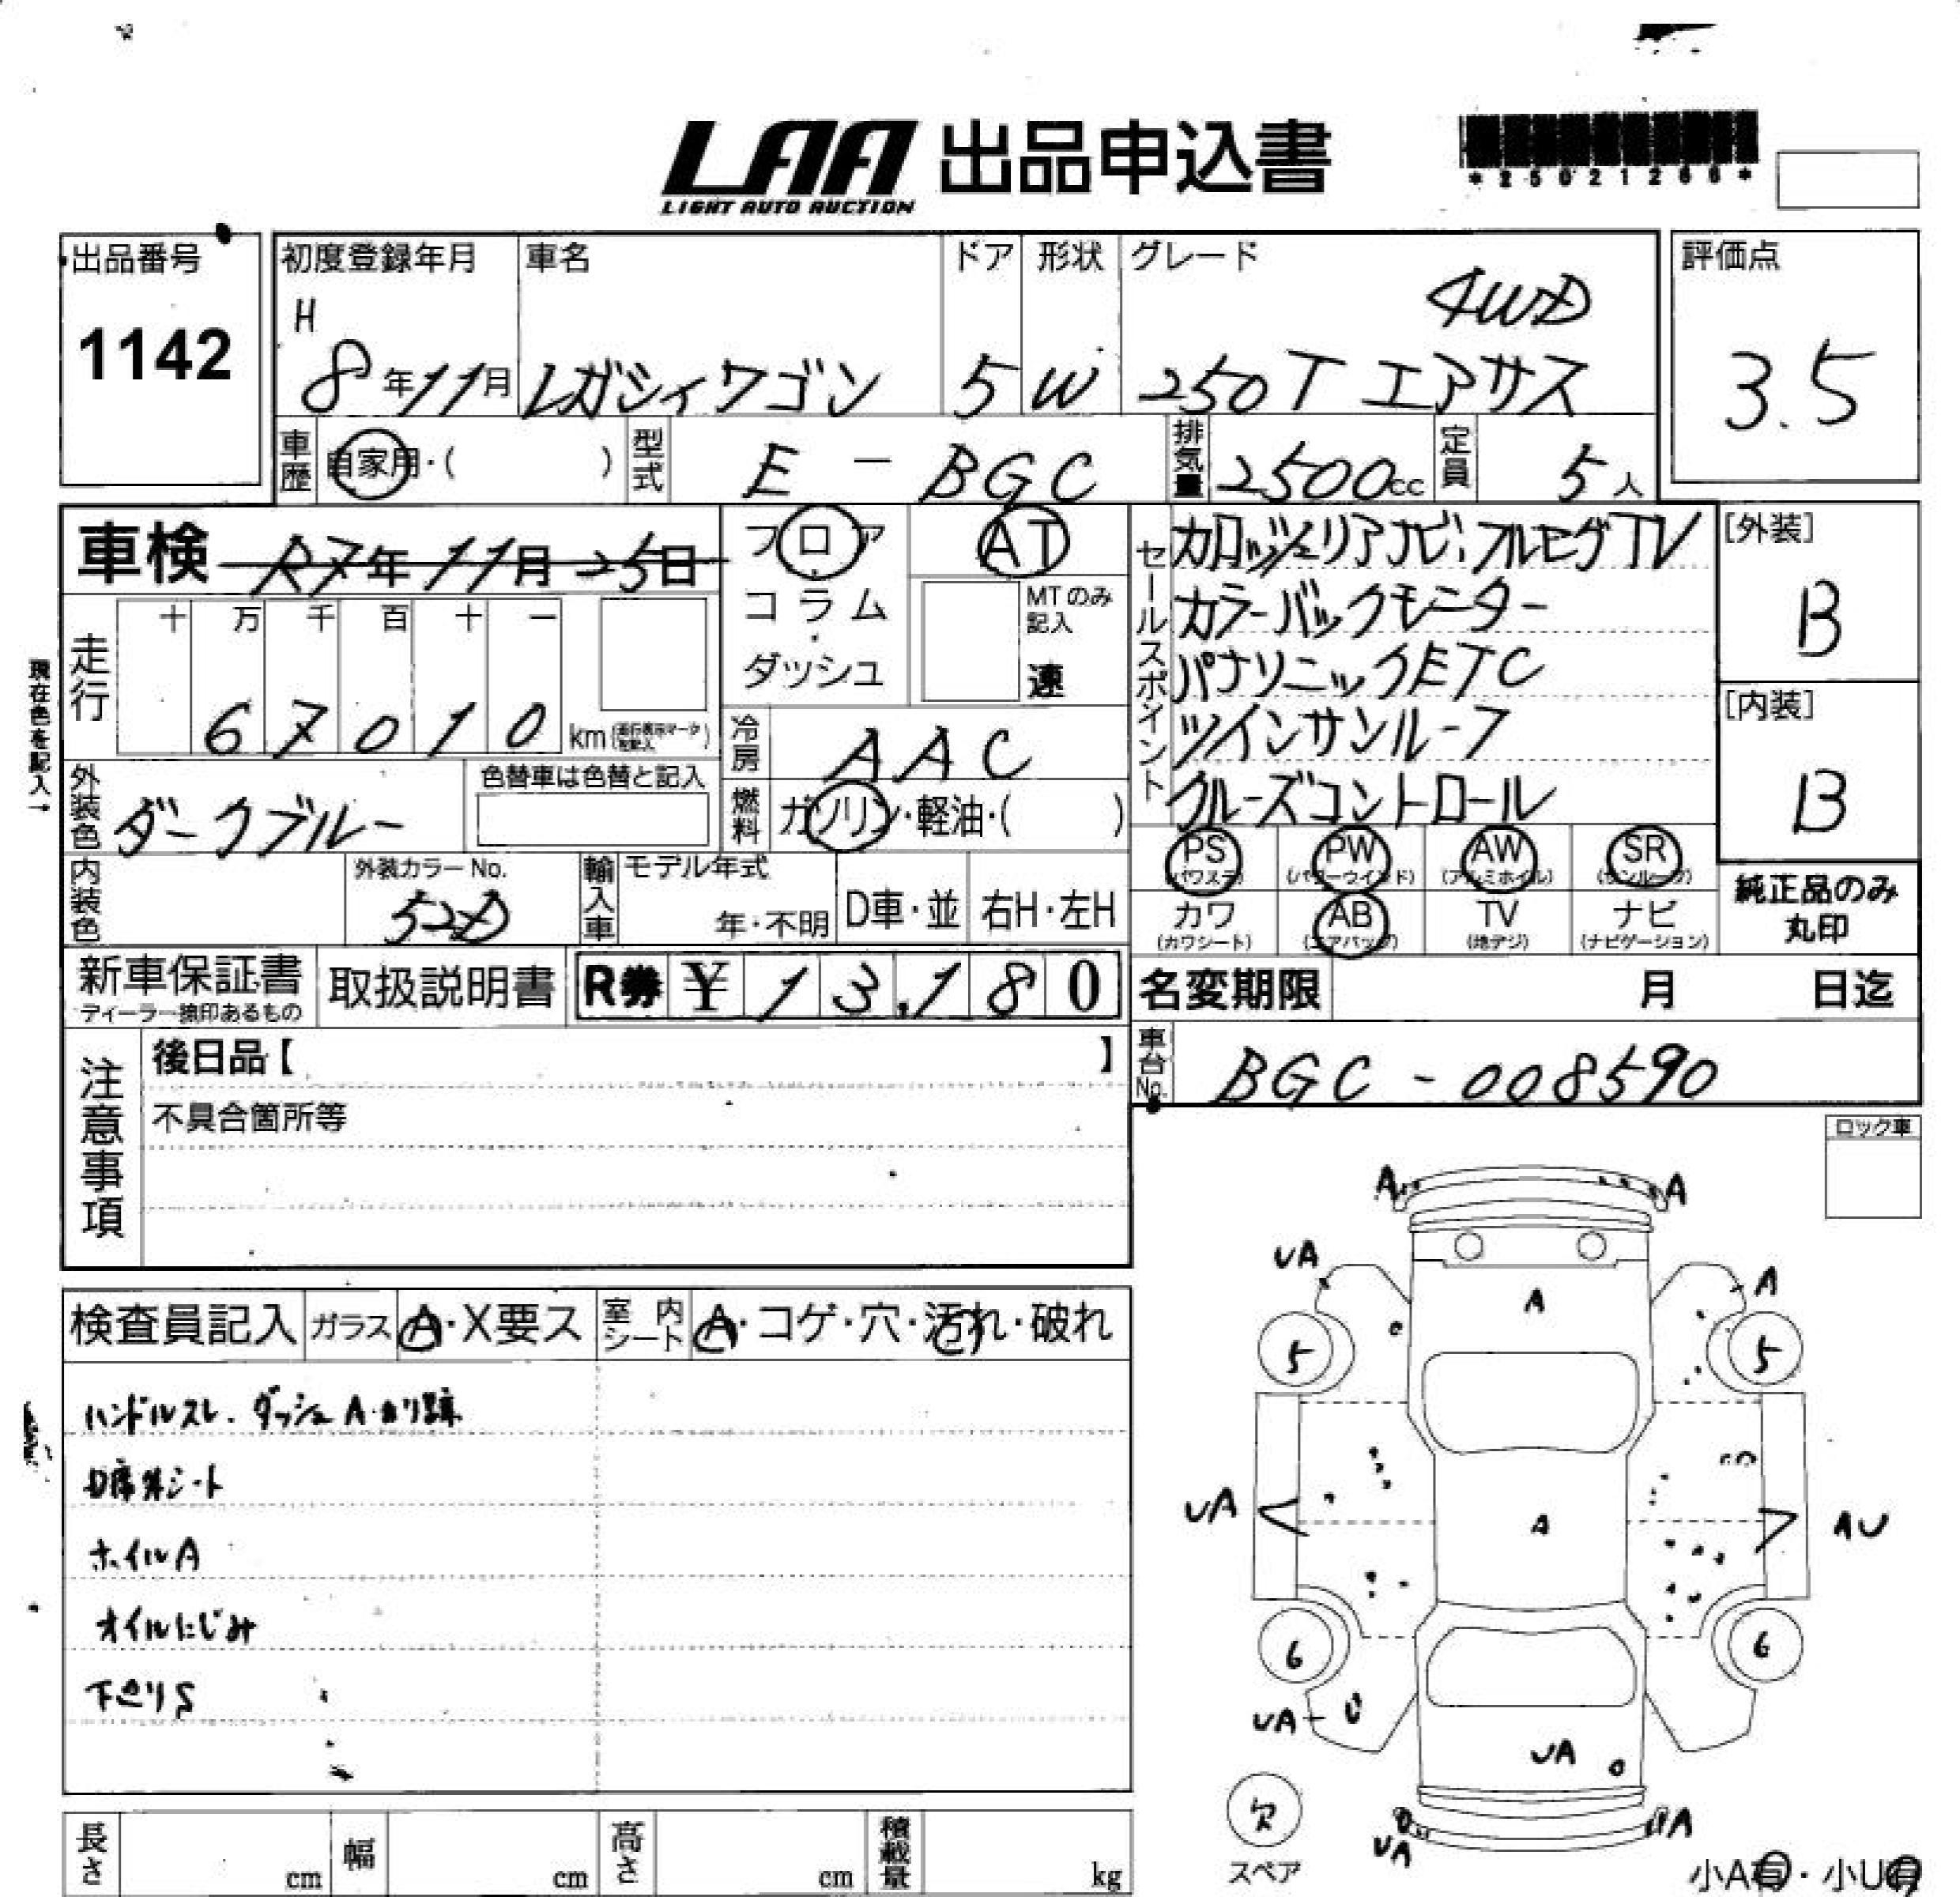 LAA 出品申込書
LIGHT AUTO AUCTION
*25021266*
出品番号
1142
初度登録年月
H
8年11月
車名
レガシィワゴン
ドア
5
形状
W
グレード
4WD
250T エアサス
評価点
3.5
車歴 自家用・( )
型式 E - BGC
排気量 2500cc
定員 5人
車検 R7年11月25日
フロア
コラム
ダッシュ
AT
MTのみ記入
速
セールスポイント
カロッツェリアナビ・フルセグTV
カラーバックモニター
パナソニックETC
ツインサンルーフ
クルーズコントロール
[外装]
B
[内装]
B
現在色を記入→
走行
十 万 千 百 十 一
6 7 0 1 0 km
冷房 AAC
燃料 ガソリン・軽油・( )
外装色 ダークブルー
色替車は色替と記入
内装色
外装カラーNo.
52D
輸入車 モデル年式
年・不明
D車・並
右H・左H
PS (パワステ)
PW (パワーウインド)
AW (アルミホイル)
SR (サンルーフ)
カワ (カワシート)
AB (エアバッグ)
TV (地デジ)
ナビ (ナビゲーション)
純正品のみ
丸印
新車保証書
ディーラー捺印あるもの
取扱説明書
R券 ¥ 13,180
名変期限 月 日迄
車台No. BGC-008590
注意事項
後日品【 】
不具合箇所等
ロック車
検査員記入
ガラス A・X要ス
室内シート A・コゲ・穴・汚れ・破れ
ハンドルスレ. ダッシュA・ノリ跡
D席外シート
ホイルA
オイルにじみ
下回りS
A A
UA A
A
5 5
UA A AU
6 6
UA U
UA
UA A
欠
スペア
小A有・小U有
長さ cm
幅 cm
高さ cm
積載量 kg